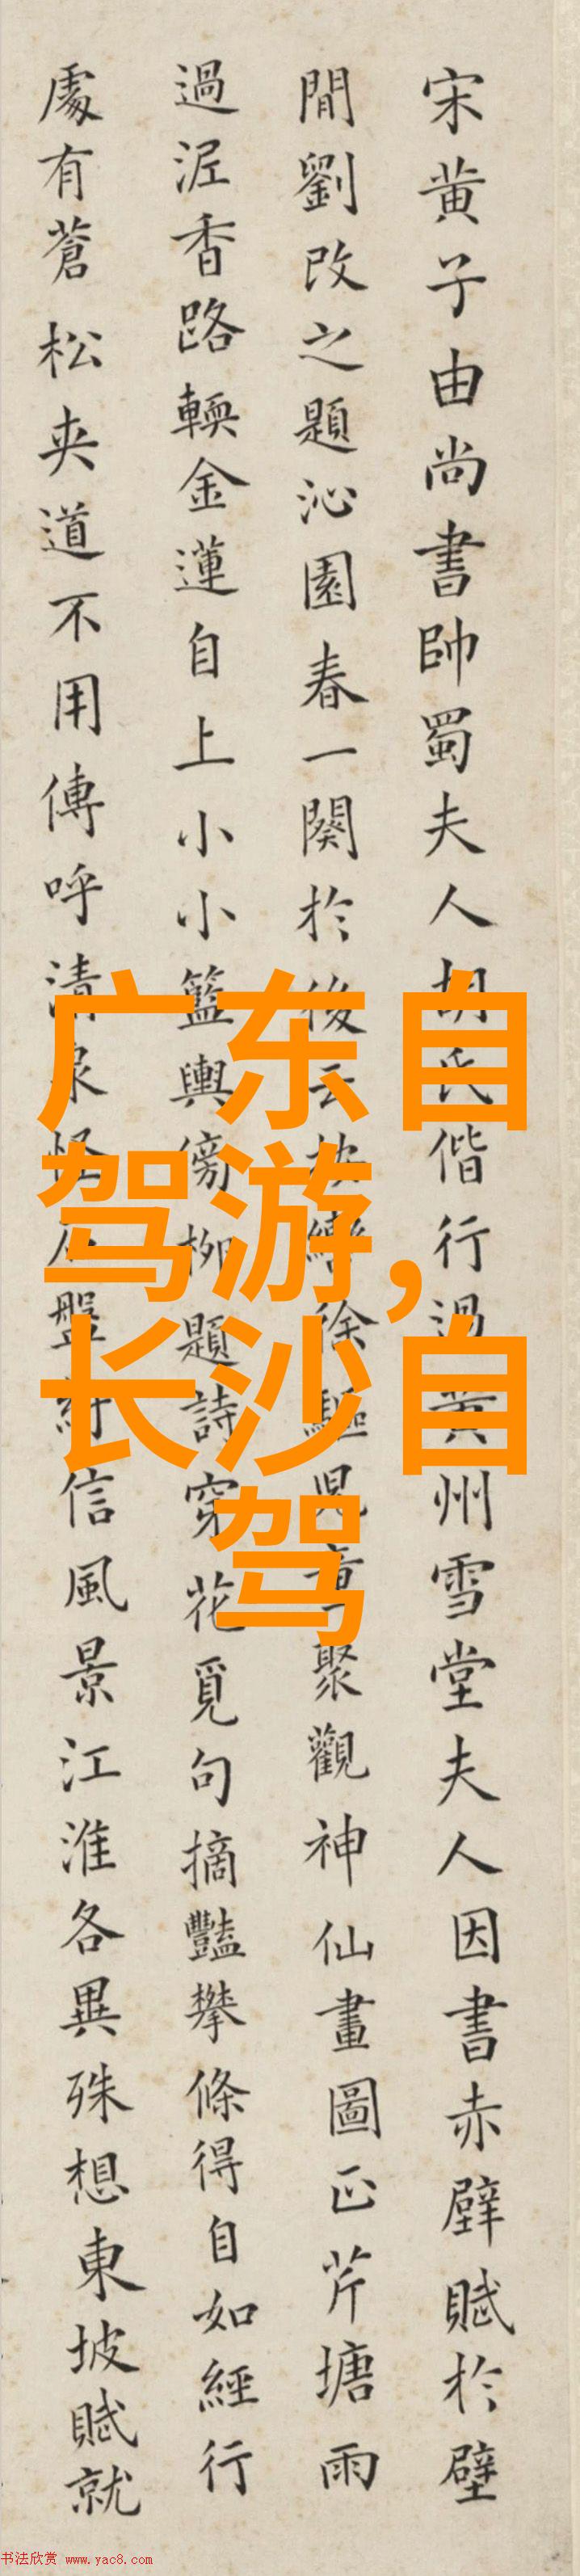 宋黄子由尚書帥蜀夫人胡氏偕行過黄州雪堂夫人因書赤壁賦於壁
間劉改之題沁園春一闋於後云按轡徐驅兒童聚觀神仙畫圖正芹塘雨
過泥香路輭金蓮自上小小籃輿傍柳題詩穿花覓句摘豔攀條得自如經行
處有蒼松夾道不用傳呼清泉怪石盤紆信風景江淮各異殊想東坡賦就
广东自
驾游,
长沙自
驾
书法欣赏 www.yac8.com